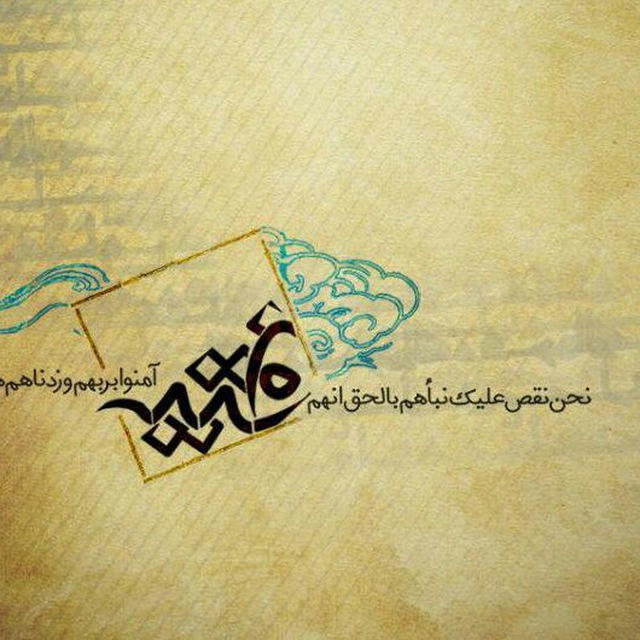 نحن نقص عليك نبأهم بالحق انهم
فتية
آمنوا بربهم وزدناهم